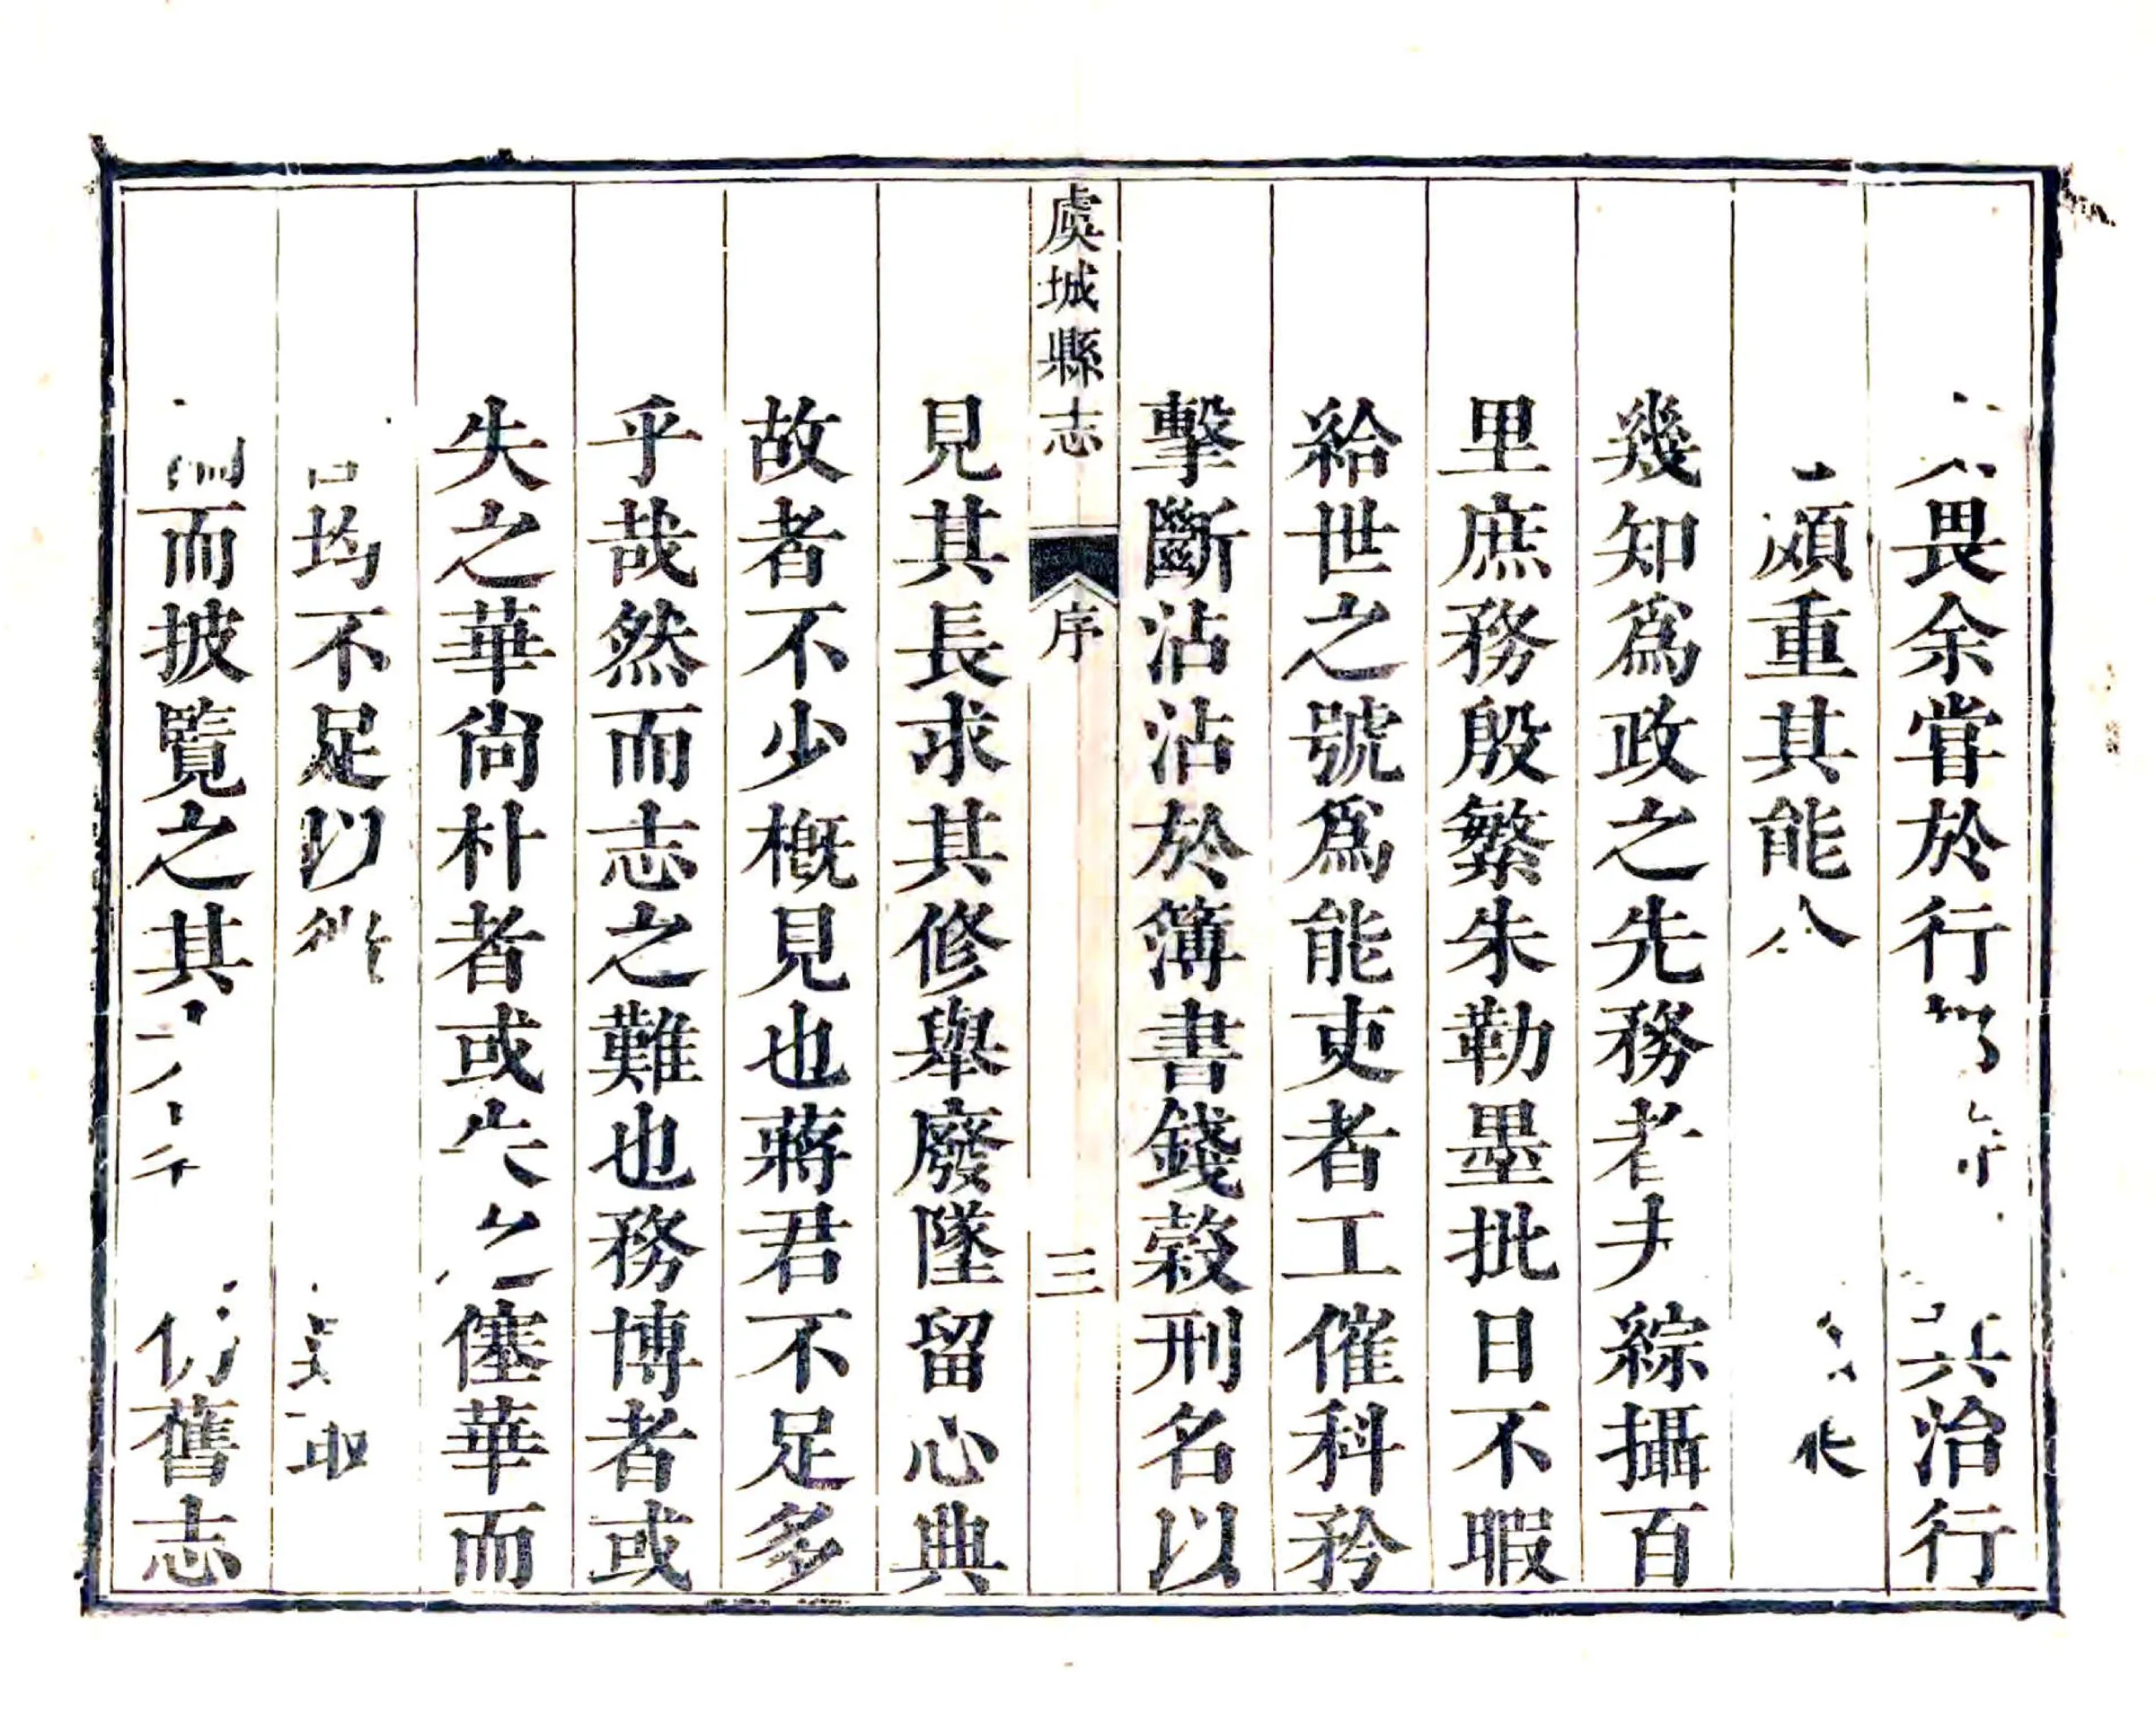 畏余嘗於行治行
頗重其能
幾知爲政之先務者夫綜攝百
里庶務殷繁朱勒墨批日不暇
給世之號爲能吏者工催科矜
擊斷沾沾於簿書錢穀刑名以
虞城縣志 序 三
見其長求其修舉廢墜留心典
故者不少概見也蔣君不足多
乎哉然而志之難也務博者或
失之華尙朴者或失之僿華而
不足以
而披覽之其仍舊志